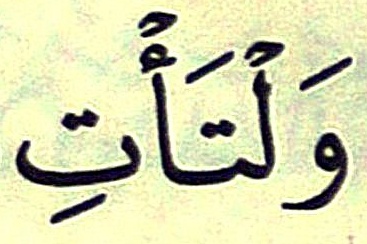 وَلْتَأْتِ